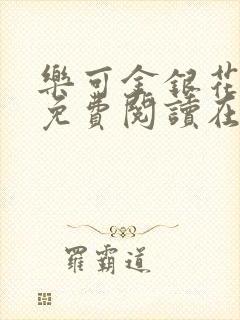 樂可金銀花
免費閱讀在
羅霸道